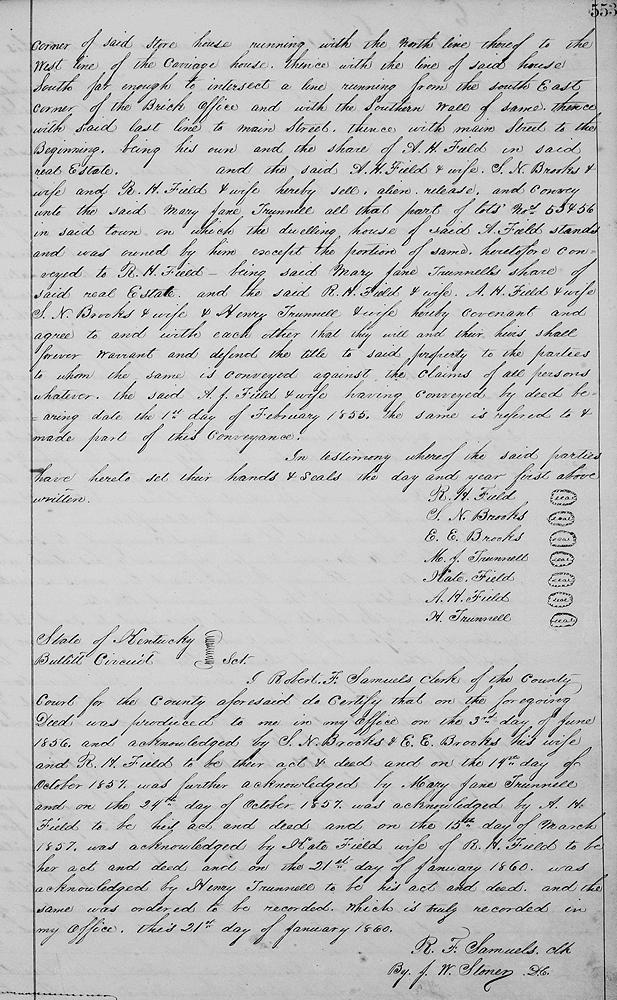 553
corner of said Store house running with the North line thereof to the
West line of the Carriage house. thence with the line of said house
South far enough to intersect a line running from the South East
corner of the Brick Office and with the Southern Wall of same. thence
with said last line to main Street. thence with main Street to the
Beginning. being his own and the share of A. H. Field in said
real Estate. and the said A. H. Field & wife. S. N. Brooks &
wife and R. H. Field & wife hereby sell. alien. release. and Convey
unto the said Mary Jane Trunnell all that part of lots Nos 55 & 56
in said town on which the dwelling house of said A. Field stands
and was owned by him except the portion of same. heretofore Con-
veyed to R. H. Field - being said Mary Jane Trunnells share of
said real Estate. and the said R. H. Field & wife. A. H. Field & wife
S. N. Brooks & wife & Henry Trunnell & wife hereby Covenant and
agree to and with each other that they will and their heirs shall
forever Warrant and defend the title to said property to the parties
to whom the same is Conveyed against the Claims of all persons
whatever. the said A. J. Field & wife having Conveyed by deed be-
-aring date the 1st day of February 1855. the same is refered to &
made part of this Conveyance.
In testimony whereof the said parties
have hereto set their hands & Seals the day and year first above
written. R. H. Field seal
S. N. Brooks seal
E. E. Brooks seal
M. J. Trunnell seal
Kate. Field seal
A. H. Field seal
H. Trunnell seal
State of Kentucky
Bullitt Circuit Sct.
I Robert. F. Samuels Clerk of the County
Court for the County aforesaid do Certify that on the foregoing
Deed was produced to me in my Office on the 3rd day of June
1856. and acknowledged by S. N. Brooks & E. E. Brooks his wife
and R. H. Field to be their act & deed and on the 19th day of
October 1857. was further acknowledged by Mary Jane Trunnell
and on the 24th day of October 1857. was acknowledged by A. H.
Field to be his act and deed and on the 15th day of March
1857. was acknowledged by Kate Field wife of R. H. Field to be
her act and deed and on the 21st day of January 1860. was
acknowledged by Henry Trunnell to be his act and deed. and the
same was ordered to be recorded. Which is truly recorded in
my Office. this 21st day of January 1860.
R. F. Samuels. clk
By. J. W. Stoner D.C.